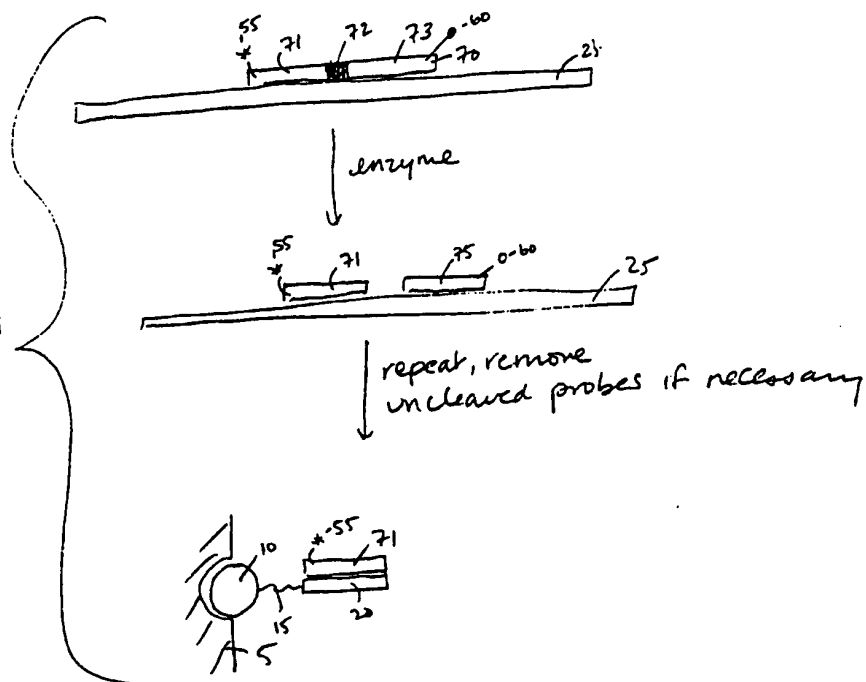 55
*
71
72
73
-60
70
25
enzyme
55
*
71
75
0-60
25
repeat, remove
uncleaved probes if necessary
10
*-55
71
15
20
5